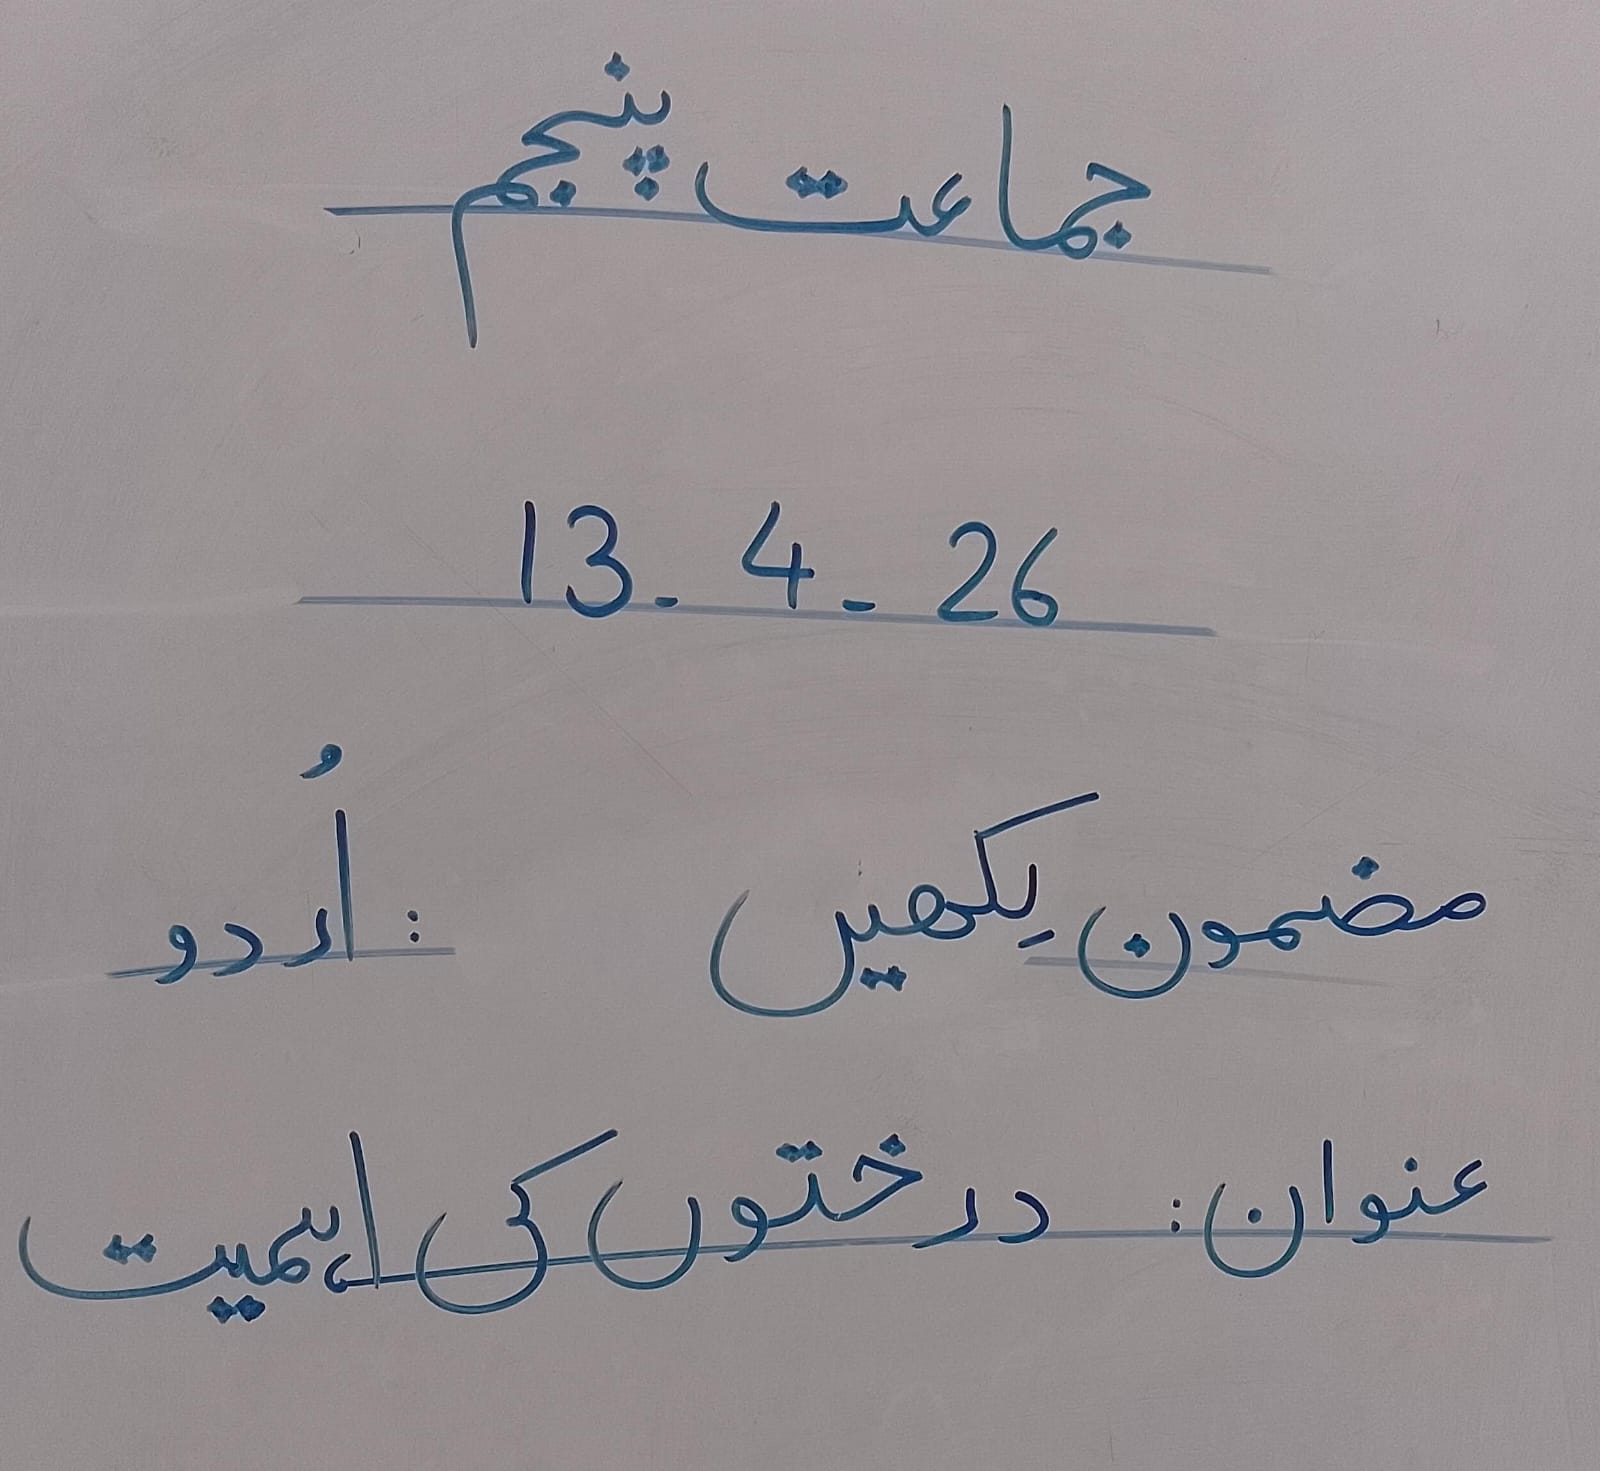 جماعت پنجم
13-4-26
مضمون لِکھیں :اُردو
عنوان: درختوں کی اہمیت